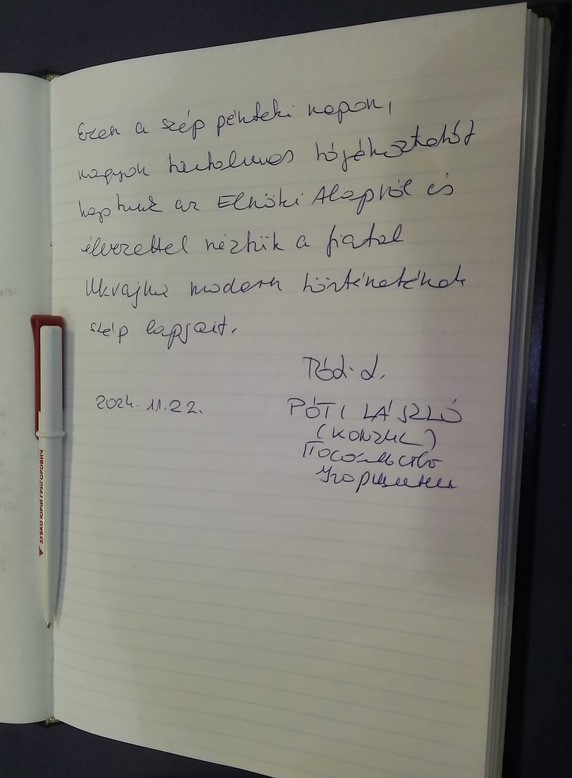 Ezen a szép pénteki napon,
nagyon tartalmas tájékoztatót
kaptunk az Elnöki Alapról és
élvezettel néztük a fiatal
Ukrajna modern történetének
szép lapjait.
2024. 11.22.
PÓTI LÁSZLÓ
(KONZUL)
Посольство
Угорщини
ЗУБКО ЮРІЙ ГРИГОРОВИЧ